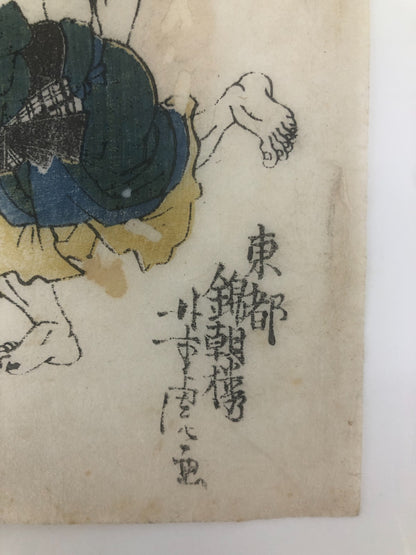 東都
錦朝楼
芳虎画